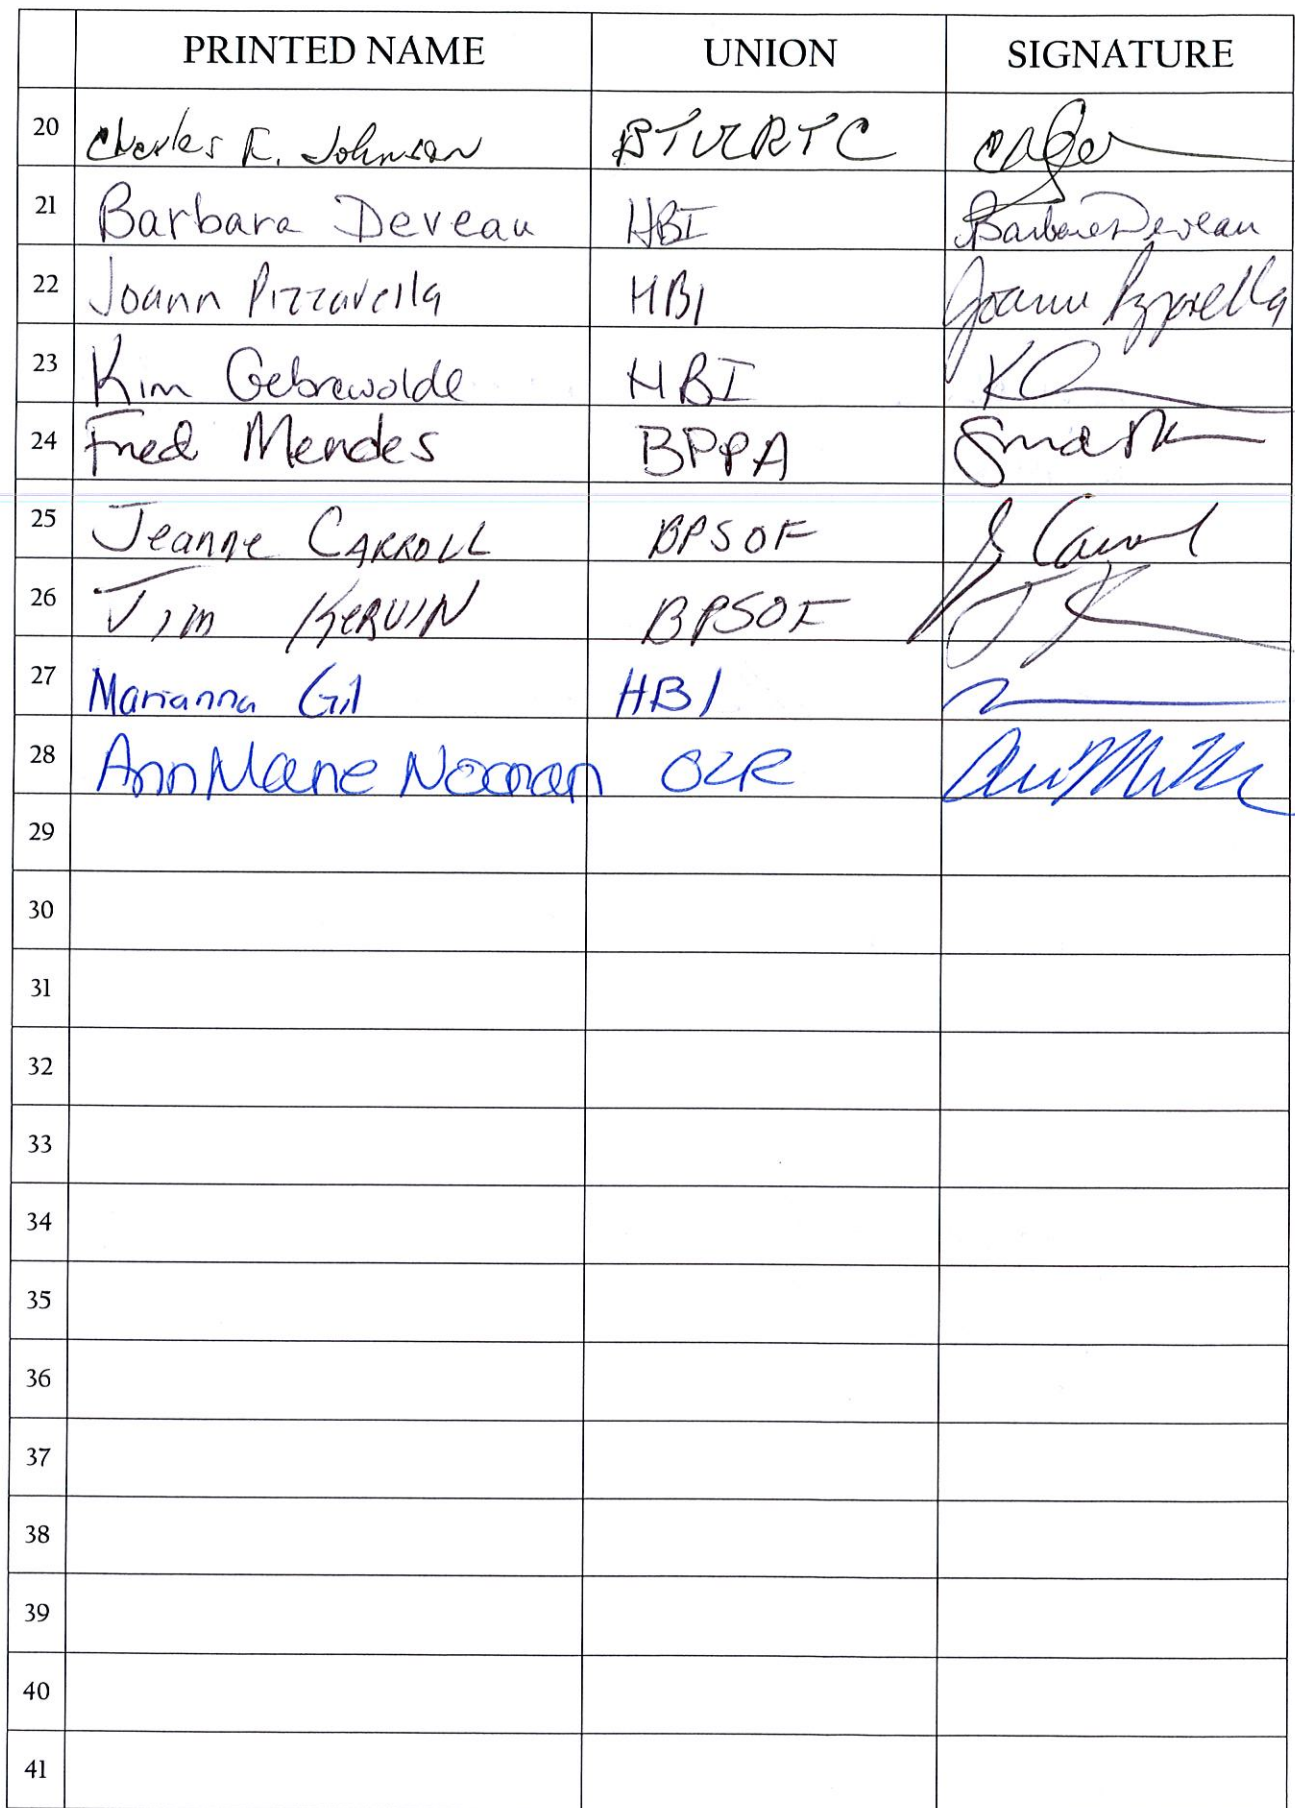 PRINTED NAME UNION SIGNATURE
20 Charles R. Johnson BTURTC
21 Barbara Deveau HBI Barbara Deveau
22 Joann Pizzarella HBI Joann Pizzarella
23 Kim Gebrewolde HBI K
24 Fred Mendes BPPA
25 Jeanne CARROLL BPSOF J Carroll
26 Jim KERVIN BPSOF J K
27 Marianna Gil HBI
28 AnnMarie Noonan OLR
29
30
31
32
33
34
35
36
37
38
39
40
41